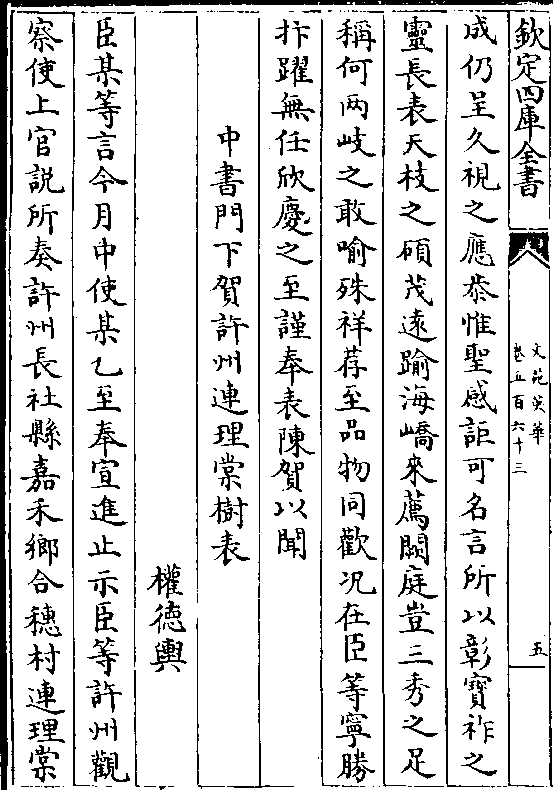 欽定四庫全書
文苑英華
卷五百六十三
五
成仍呈久視之應恭惟聖感詎可名言所以彰寳祚之
靈長表天枝之碩茂遠踰海嶠來薦闕庭豈三秀之足
稱何两岐之敢喻殊祥荐至品物同歡况在臣等寧勝
抃躍無任欣慶之至謹奉表陳賀以聞
中書門下賀許州連理棠樹表
權德輿
臣某等言今月中使某乙至奉宣進止示臣等許州觀
察使上官説所奏許州長社縣嘉禾鄉合穗村連理棠